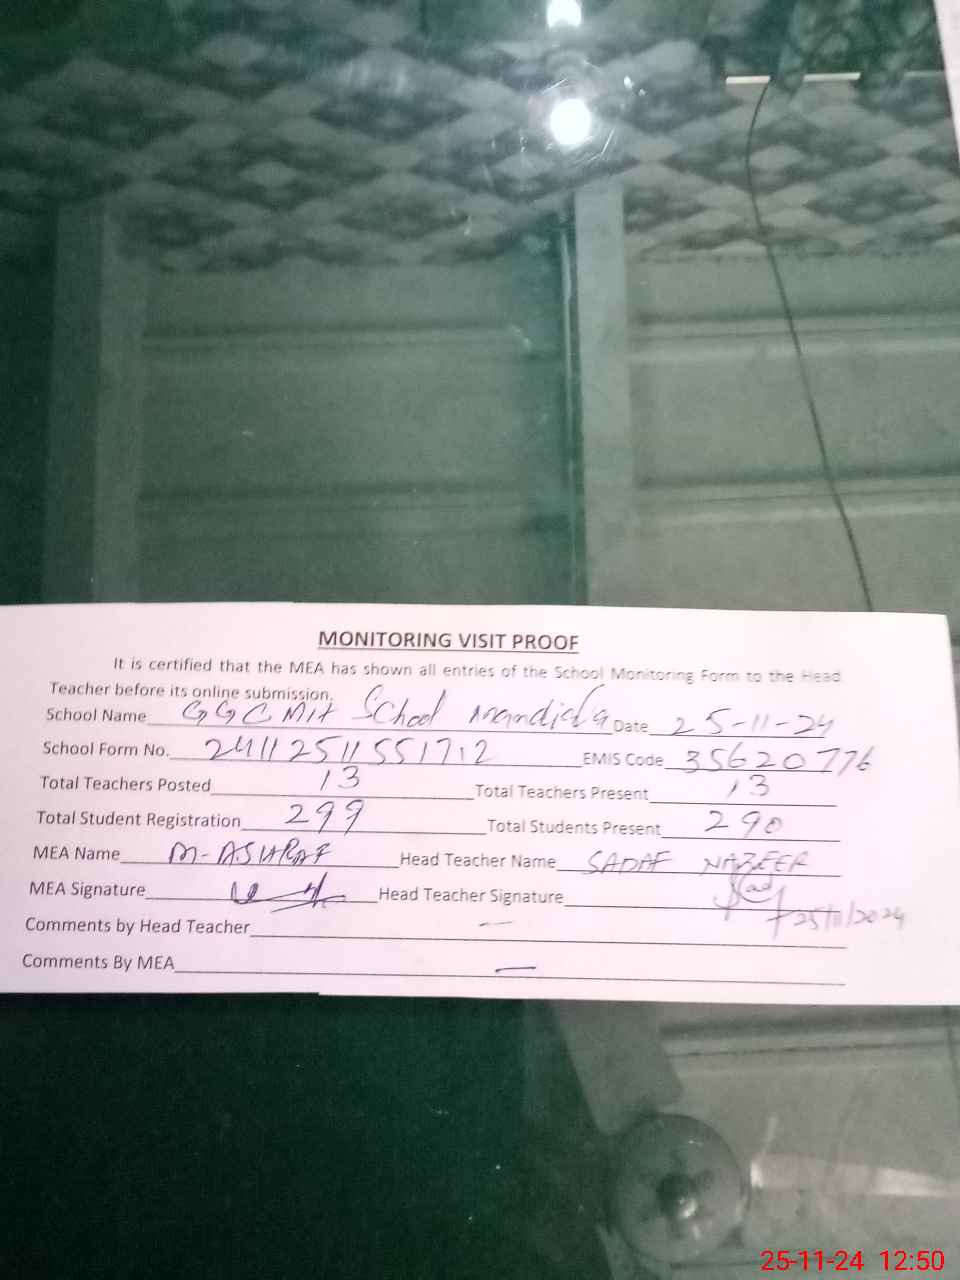 MONITORING VISIT PROOF
It is certified that the MEA has shown all entries of the School Monitoring Form to the Head
Teacher before its online submission.
School Name GGCMH School Date 25-11-24
School Form No. 24112511551712 EMIS Code 35620776
Total Teachers Posted 13 Total Teachers Present 13
Total Student Registration 299 Total Students Present 290
MEA Name M-ASHRAF Head Teacher Name SADAF NAZEER
MEA Signature Head Teacher Signature
25/11/2024
Comments by Head Teacher —
Comments By MEA —
25-11-24 12:50